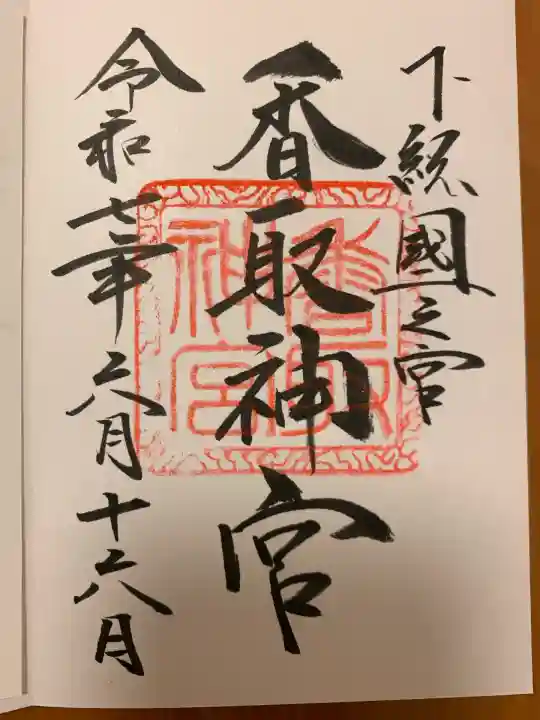 下総國一之宮
香取神宮
令和七年六月十六日
香取
神宮